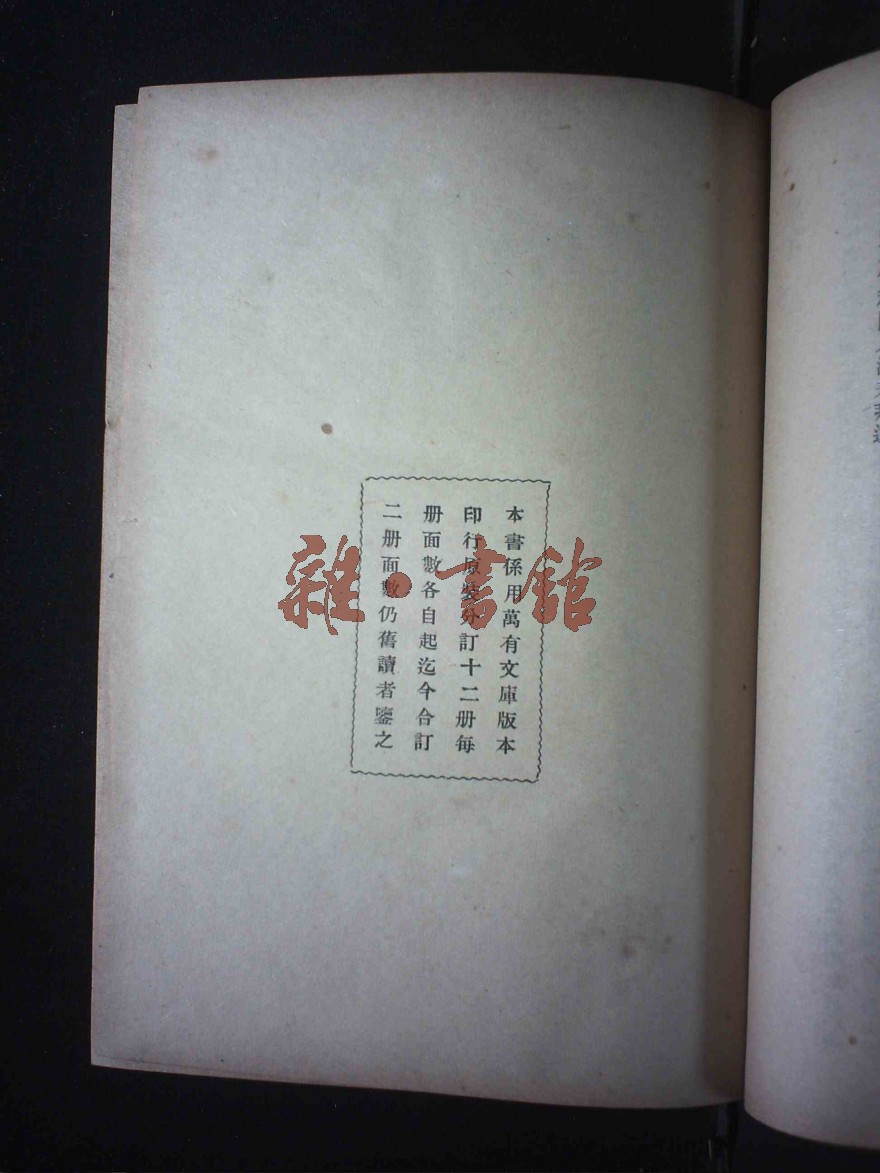 本書係用萬有文庫版本
印行原裝分訂十二册每
册面數各自起迄今合訂
二册面數仍舊讀者鑒之
雜·書館